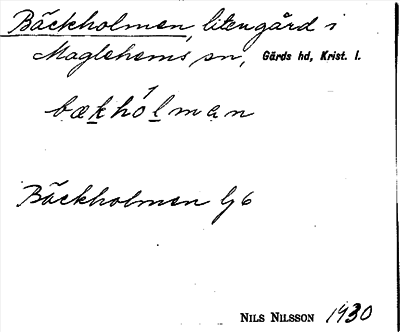 Bäckholmen, liten gård i
Maglehems sn, Gärds hd, Krist. l.
bækhólman
Bäckholmen Ij6
NILS NILSSON 1930